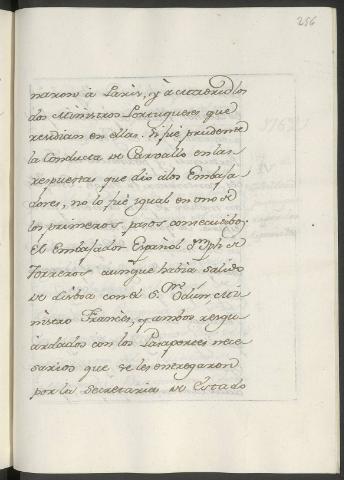 256
naron à Paris, y à Madrid los
dos Ministros Portugueses que
residian en ellas. Si fue prudente
la Conducta de Carvallo en las
respuestas que dio alos Embaja
dores, no lo fue igual en uno de
los primeros pasos consecutivos,
el Embajador Español Dⁿ Jph de
Torreros aunque habia salido
de Lisboa con el Sʳ Odun, Mi
nistro Francès, y ambos resgu
ardados con los Pasaportes nece
sarios que se les entregaron
por la Secretaria de Estado